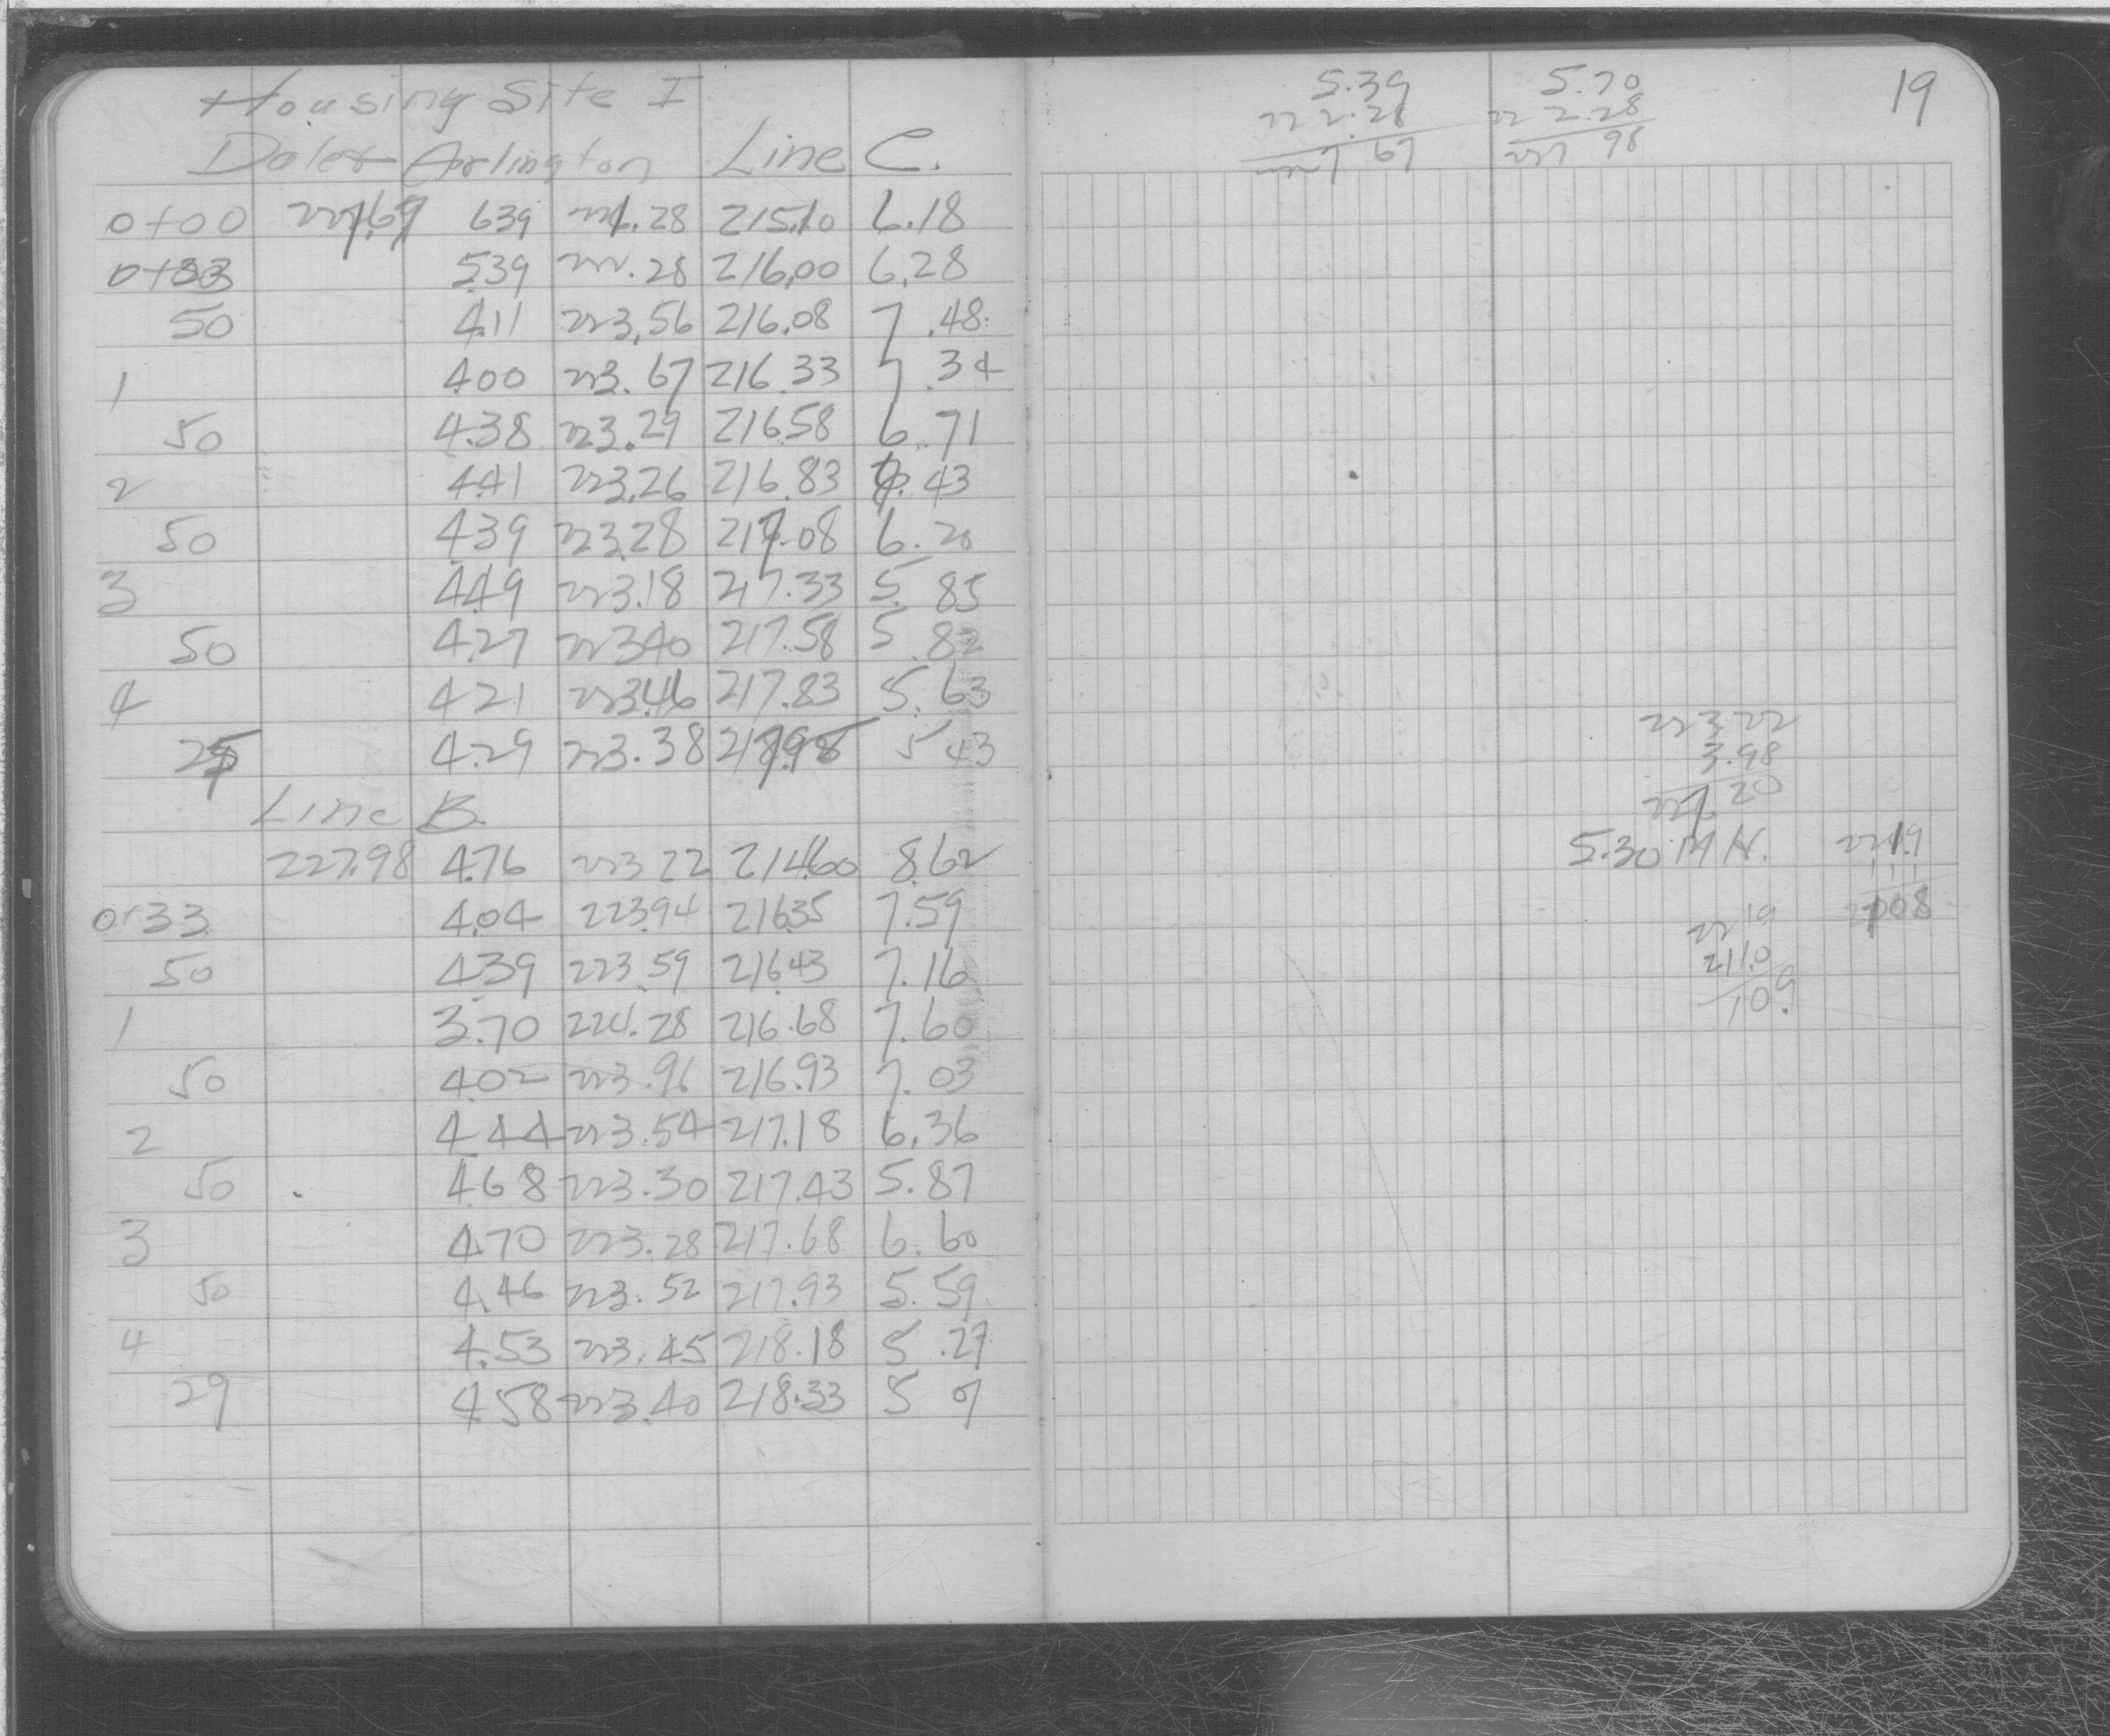 Housing Site I
Daler Arlington Line C.
0+00 227.67 639 221.28 215.10 6.18
0+33 5.39 222.28 216.00 6.28
50 4.11 223.56 216.08 7.48
1 4.00 223.67 216.33 7.34
50 4.38 223.29 216.58 6.71
2 4.41 223.26 216.83 6.43
50 4.39 223.28 217.08 6.20
3 4.49 223.18 217.33 5.85
50 4.27 223.40 217.58 5.82
4 4.21 223.46 217.83 5.63
25 4.29 223.38 217.95 5 43
Line B.
227.98 4.76 223 22 214.60 8.62
0+33 4.04 223.94 216.35 7.59
50 4.39 223.59 216.43 7.16
1 3.70 224.28 216.68 7.60
50 4.02 223.96 216.93 7.03
2 4.44 223.54 217.18 6.36
50 4.68 223.30 217.43 5.87
3 4.70 223.28 217.68 6.60
50 4.46 223.52 217.93 5.59
4 4.53 223.45 218.18 5.27
29 4.58 223.40 218.33 5 07
19
5.39 5.70
222.28 222.28
227 67 227 98
223 22
3.98
20
5.30 M H. 221.9
11.1
2108
2219
211.0
10.9